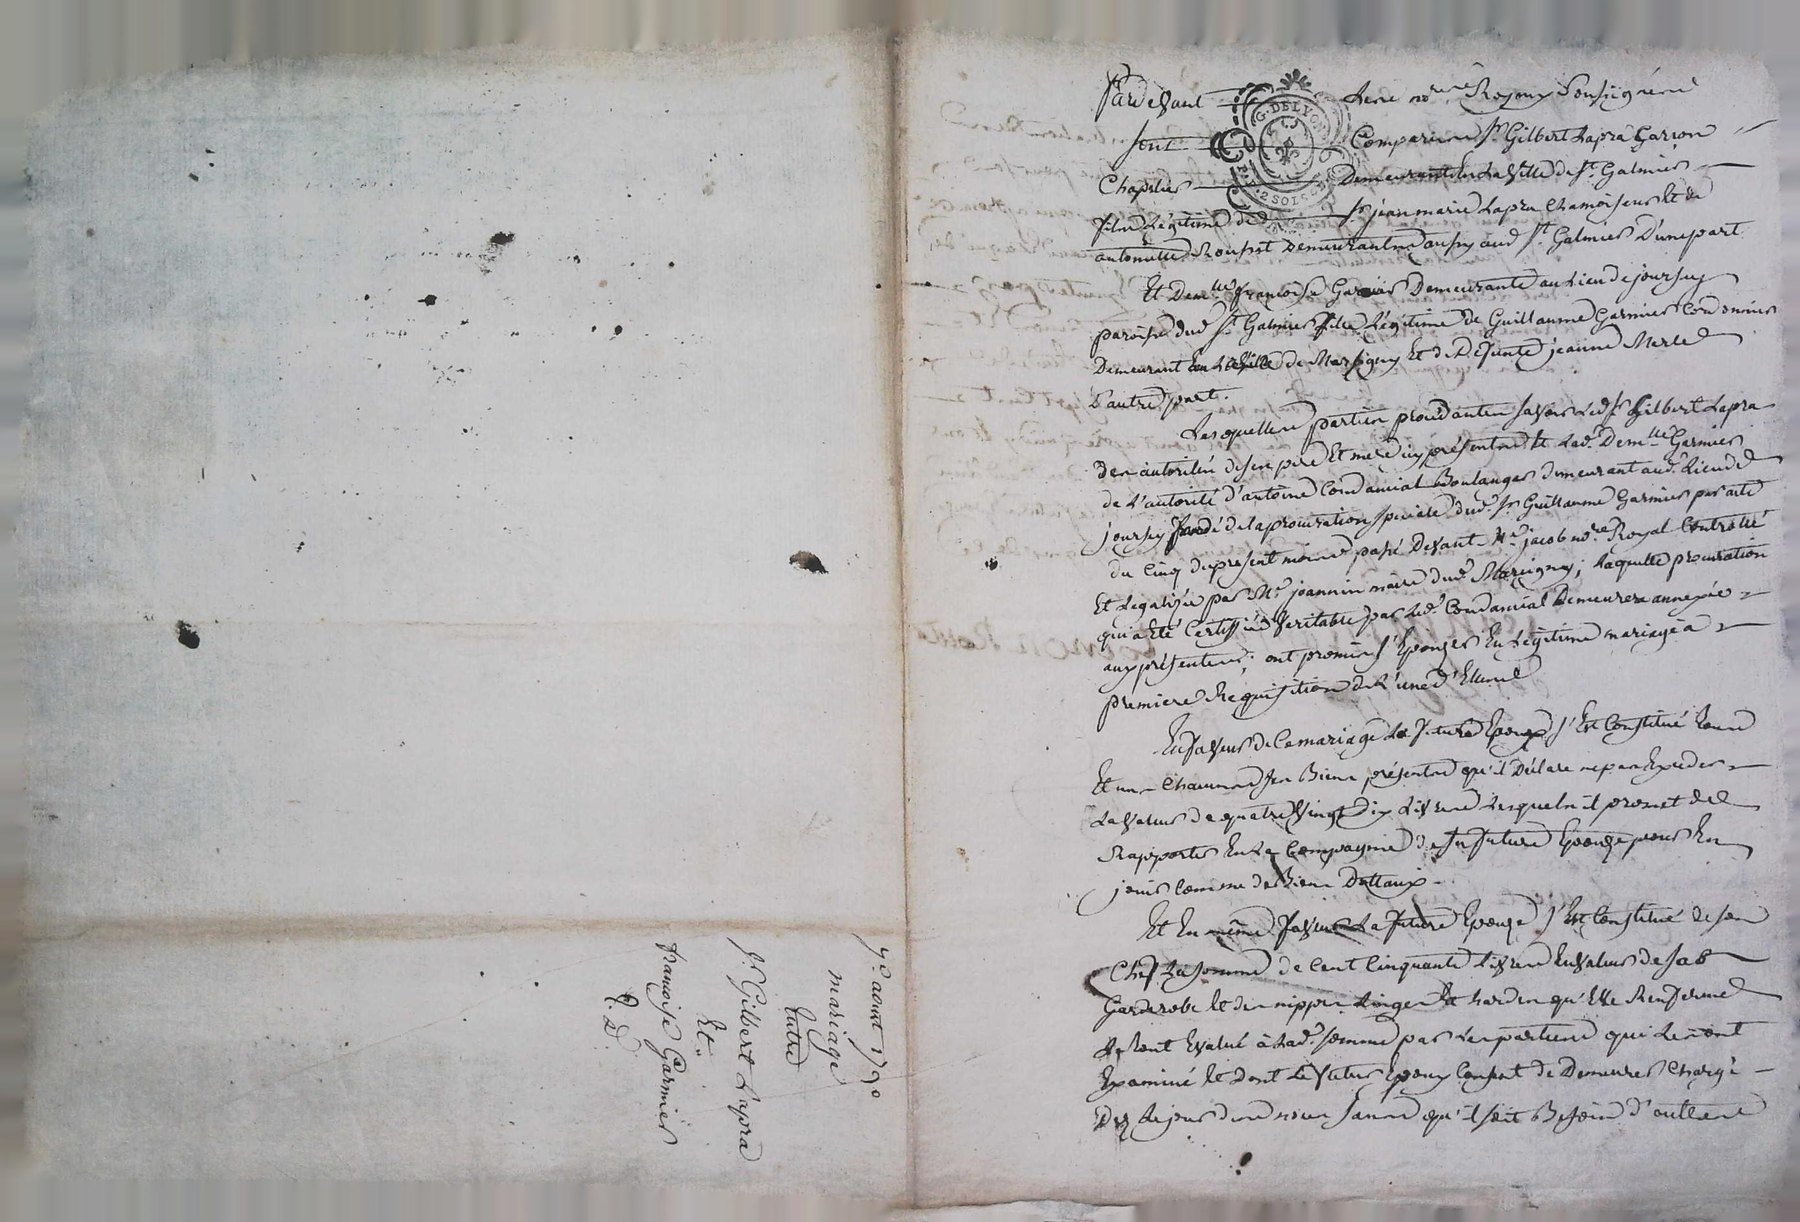 7e aoust 1790
mariage
Entre
Sr Gilbert Lapra
Et
francoise Garnier
Pardevant Les no.res Royaux soussignés
sont Comparus Sr Gilbert Lapra Garçon
Chapelier Demeurant en La Ville de St Galmier
fils Légitime de Sr jean marie Lapra Chamoiseur Et de
antoinette Rousset Demeurants aussy aud. St Galmier D'une part
Et Dem.lle françoise Garnier Demeurante au Lieu de joursey
paroisse dud. St Galmier fille Légitime de Guillaume Garnier Cordonnier
Demeurant en la Ville de Marsigny Et de Défunte jeanne Merle
D'autre part.
Lesquelles parties procédantes savoir Led. Sr Gilbert Lapra
des autorités de ses pere Et mere icy présents Et Lad. Dem.lle Garnier
de L'autorité d'antoine Condamial Boulanger demeurant aud. Lieu de
joursey fondé de la procuration speciale dud. Sr Guillaume Garnier par acte
du Cinq du present mois passé Devant Me jacob no.re Royal Controllé
Et Legalisée par Mr joannin maire dud. Marcigny; Laquelle procuration
qui a Eté Certiffiée Veritable par Led. Condamial Demeurera annexée
aux présentes; ont promis s'Epouser En Légitime mariage a
premiere Requisition de L'une d'Elles
En faveur de Ce mariage Le futur Epoux s'Est Constitué tous
Et uns Chacuns ses Biens présents qu'il Déclare ne pas Exceder
La valeur de quatre Vingt Dix Livres Lesquels il promet de
Rapporter En La Compagnie de sa future Epouse pour En
jouir Comme de Biens Dottaux.
Et En même faveur La future Epouse s'Est Constitué de son
Chef La somme de Cent Cinquante Livres En Valeur de sa
Garderobe Et des nippes Linges Et hardes qu'Elle Renferme
Le tout Evalué à Lad. somme par Les parties qui Les ont
Examiné Et Dont Le futur Epoux Consent de Demeurer Chargé
Dez Le jour des noces sans qu'il soit Besoin d'autre